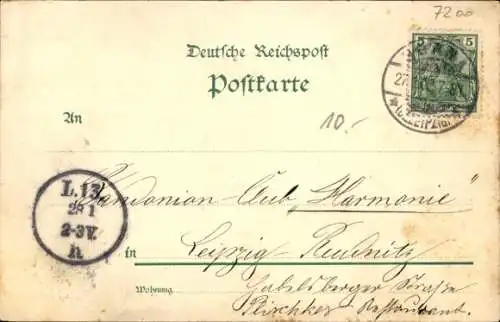 7200
Deutsche Reichspost
Postkarte
5 5
27.
(LEIPZIG)
An
10.-
Bandonion-Club "Harmonie"
L.13
28 1
2-3V.
in Leipzig Reudnitz
Wohnung Gabelsberger Straße
Restaurant